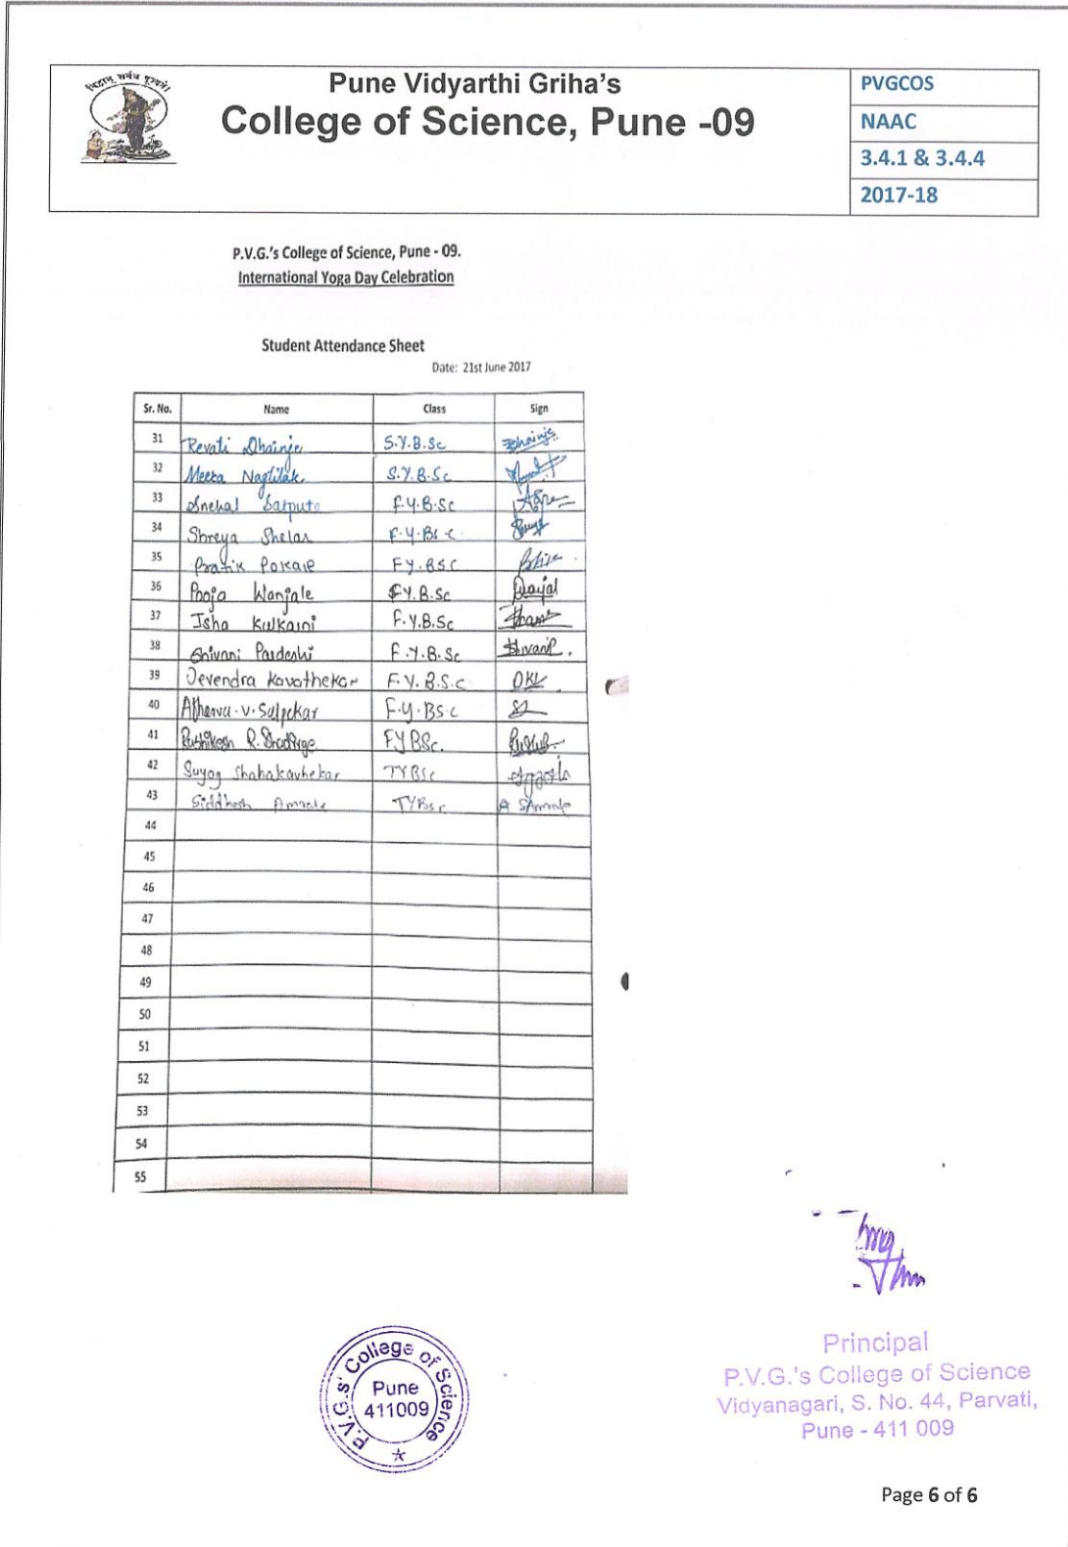 विद्वान् सर्वत्र पूज्यते।
Pune Vidyarthi Griha's
College of Science, Pune -09
PVGCOS
NAAC
3.4.1 & 3.4.4
2017-18
P.V.G.'s College of Science, Pune - 09.
International Yoga Day Celebration
Student Attendance Sheet
Date: 21st June 2017
Sr. No. Name Class Sign
31 Revati Dhainje S.Y.B.Sc
32 Meera Nagtilak S.Y.B.Sc
33 Snehal Satpute F.Y.B.Sc
34 Shreya Shelar F.Y.BSC
35 Pratik Pokale FY.BSC
36 Pooja Wanjale F.Y.B.Sc
37 Isha Kulkarni F.Y.B.Sc
38 Shivani Pardeshi F.Y.B.Sc
39 Devendra Kavathekar F.Y.B.S.C DKV
40 Atharva.V. F.Y.BSC
41 Rushikesh R. FYBSc.
42 Suyog Shahakavhekar TYBSc
43 Siddhesh TYBsc
44
45
46
47
48
49
50
51
52
53
54
55
P.V.G.s' College of Science
Pune
411009
Principal
P.V.G.'s College of Science
Vidyanagari, S. No. 44, Parvati,
Pune - 411 009
Page 6 of 6